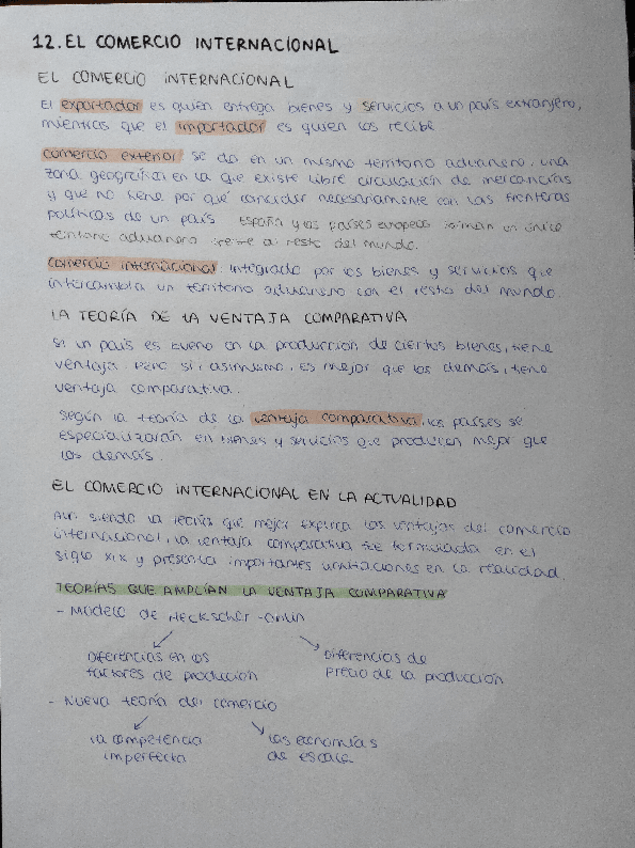 12. EL COMERCIO INTERNACIONAL
EL COMERCIO INTERNACIONAL
El exportador es quien entrega bienes y servicios a un país extranjero,
mientras que el importador es quien los recibe
comercio exterior se da en un mismo territorio aduanero, una
zona geográfica en la que existe libre circulación de mercancías
y que no tiene por qué coincidir necesariamente con las fronteras
políticas de un país España y los países europeos forman un único
territorio aduanero frente al resto del mundo.
comercio internacional: integrado por los bienes y servicios que
intercambia un territorio aduanero con el resto del mundo.
LA TEORÍA DE LA VENTAJA COMPARATIVA
Si un país es bueno en la producción de ciertos bienes, tiene
ventaja. Pero si, asimismo, es mejor que los demás, tiene
ventaja comparativa.
Según la teoría de la ventaja comparativa, los países se
especializarán en bienes y servicios que producen mejor que
los demás.
EL COMERCIO INTERNACIONAL EN LA ACTUALIDAD
Aun siendo la teoría que mejor explica las ventajas del comercio
internacional, la ventaja comparativa fue formulada en el
siglo XIX y presenta importantes limitaciones en la realidad.
TEORÍAS QUE AMPLÍAN LA VENTAJA COMPARATIVA
- Modelo de Heckscher-Ohlin
Diferencias en los
factores de producción
Diferencias de
precio de la producción
- Nueva teoría del comercio
la competencia
imperfecta
las economías
de escala